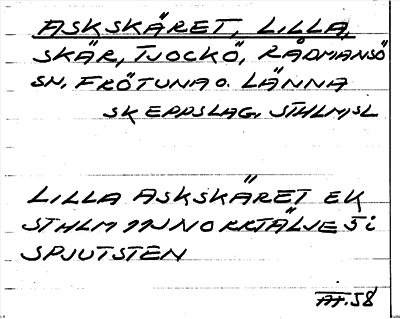 ASKSKÄRET, LILLA,
SKÄR, TJOCKÖ, RÅDMANSÖ
SN, FRÖTUNA O. LÄNNA
SKEPPSLAG, STHLMSL
LILLA ASKSKÄRET EK
STHLM 11J NORRTÄLJE 5i
SPJUTSTEN
AT.58